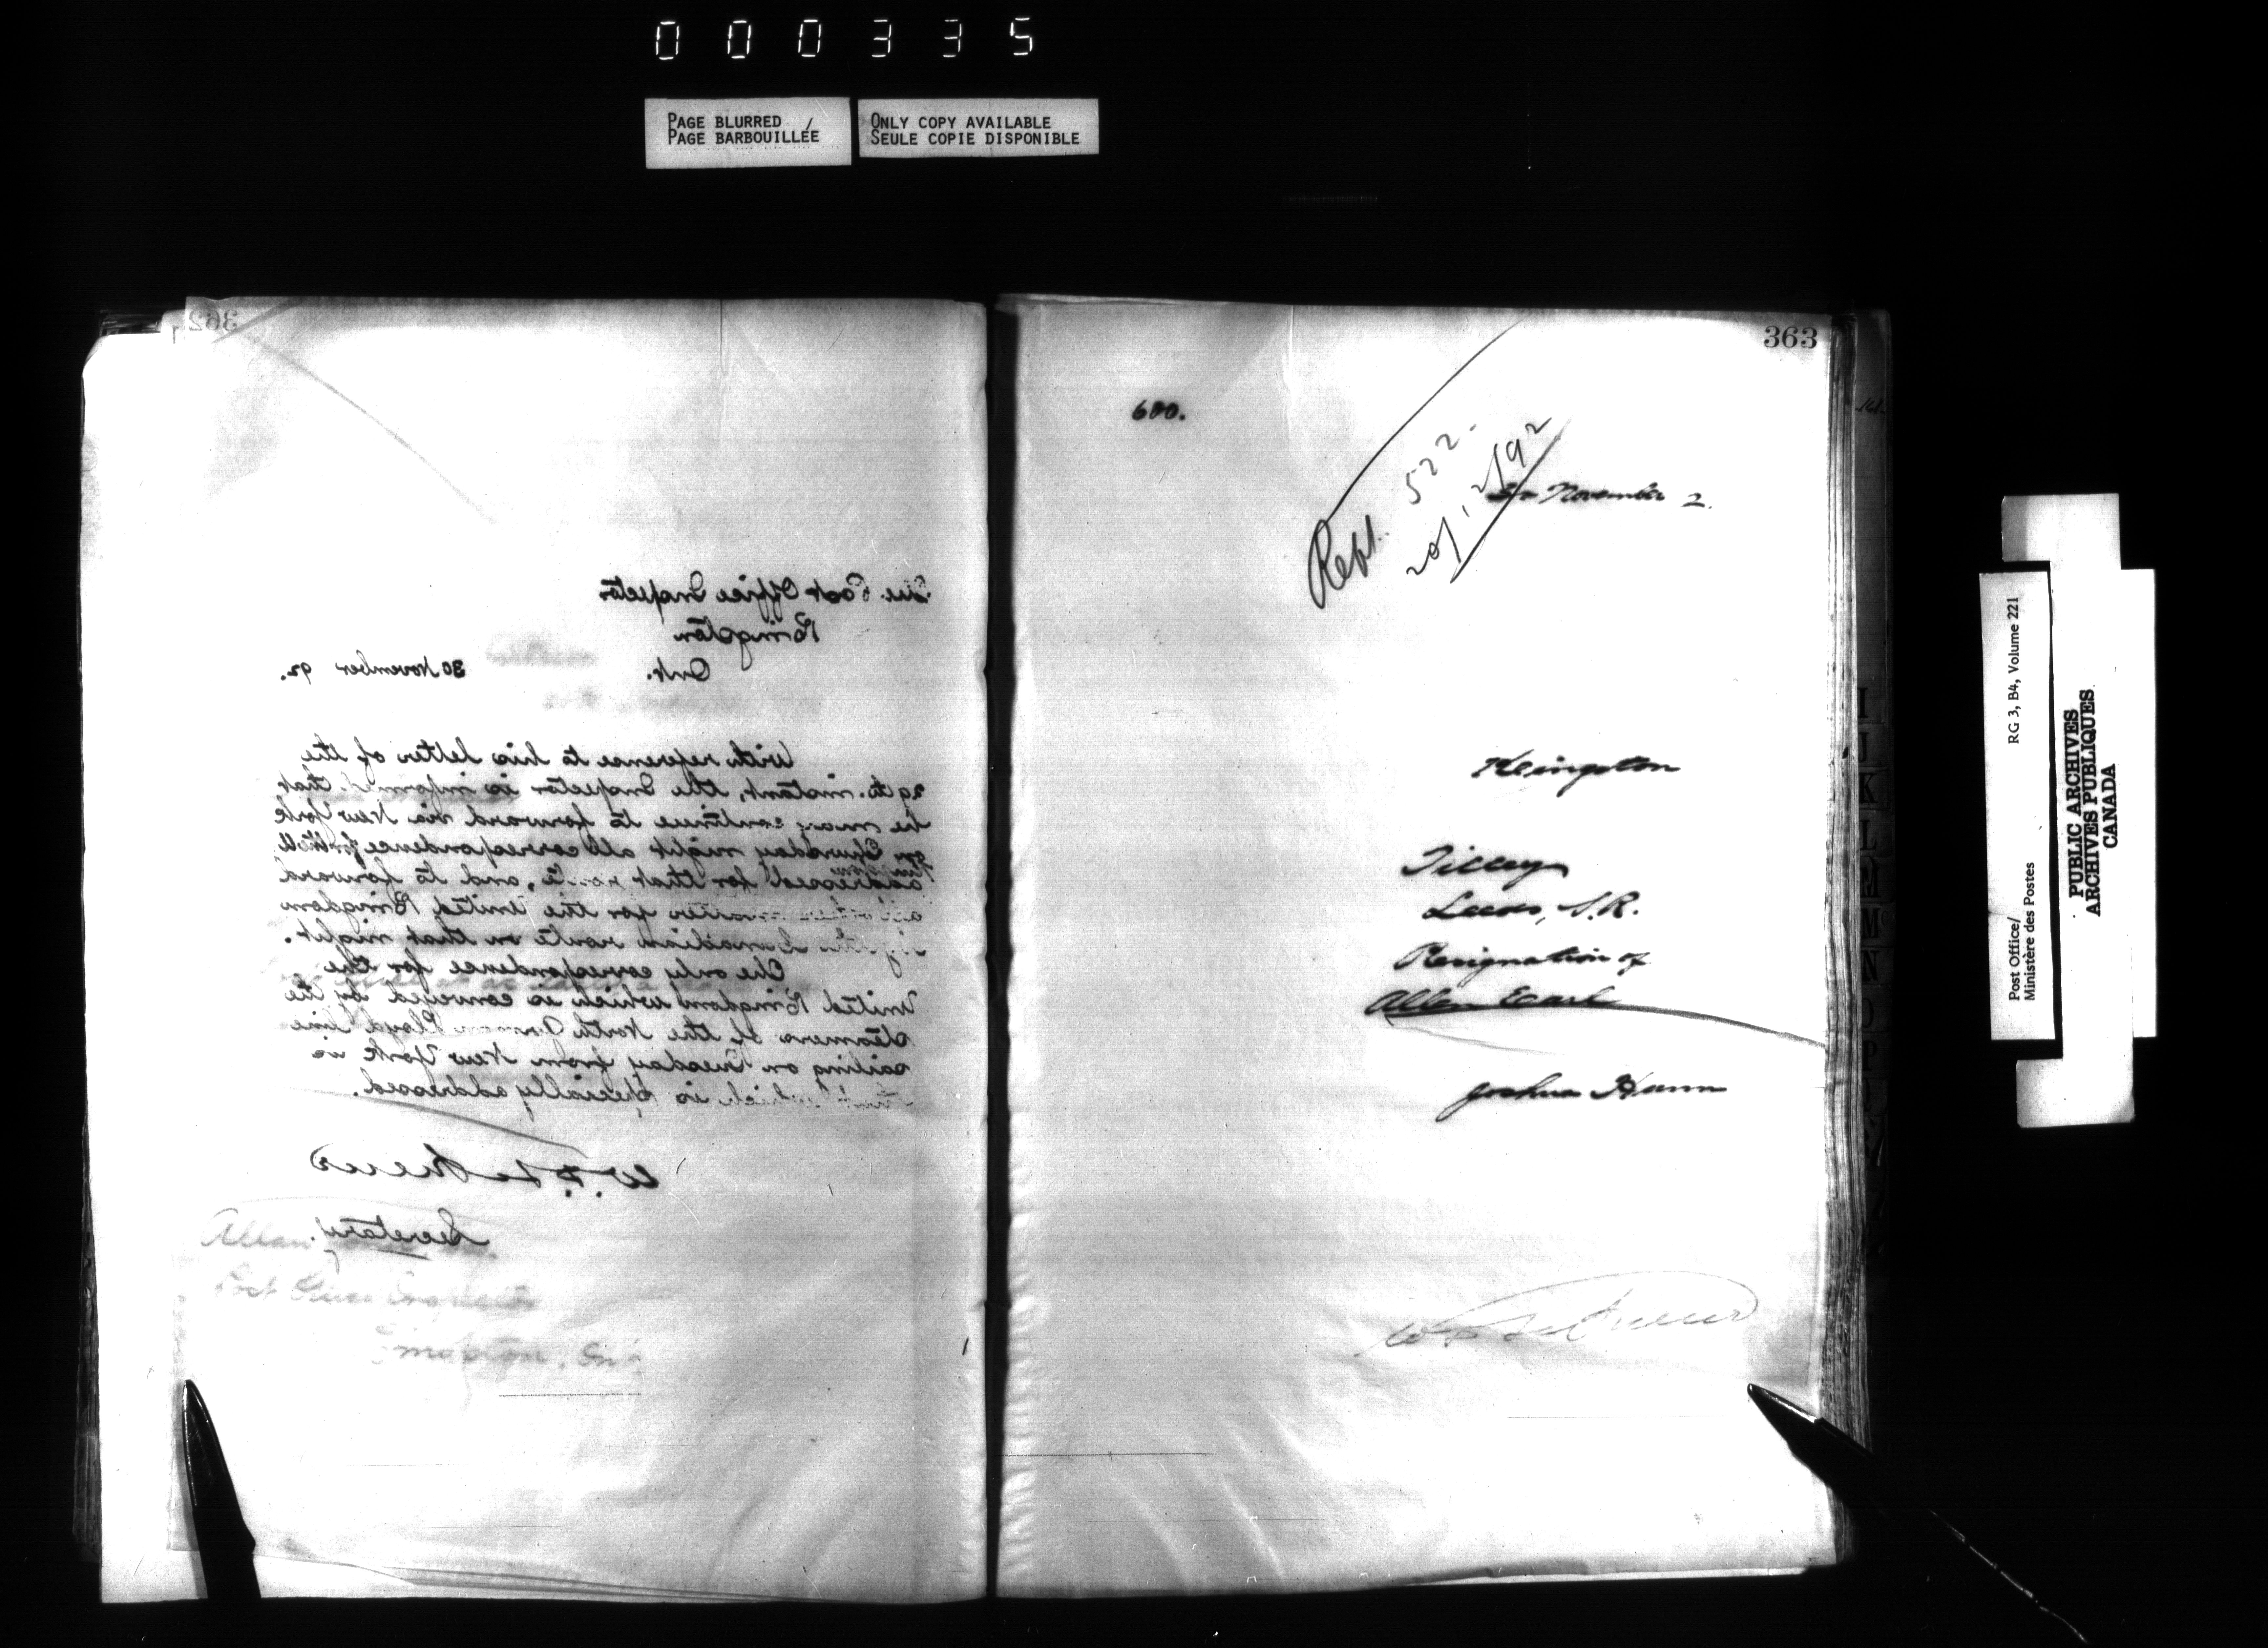 000335
PAGE BLURRED / 
PAGE BARBOUILLÉE
ONLY COPY AVAILABLE
SEULE COPIE DISPONIBLE
362
The Post Office Inspector
Kingston
Ont.
30 November 92.
With reference to his letter of the
29th. instant, the Inspector is informed that
he may continue to forward via New York
on Thursday night all correspondence
addressed for that route, and, to forward
all other matter for the United Kingdom
by the Canadian route on that night.
The only correspondence for the
United Kingdom which is conveyed by the
steamers of the North German Lloyd line
sailing on Tuesday from New York is
that which is specially addressed.
W. D. LeSueur
Secretary.
Allan
Post Office Inspector
Kingston, Ont
363
600.
Rept. 522.
20/12/92
30 November 2.
Kingston
Tilley
Leeds, S.R.
Resignation of
Allen Earl
Joshua Hunn
W D LeSueur
Post Office/
Ministère des Postes
RG 3, B4, Volume 221
PUBLIC ARCHIVES
ARCHIVES PUBLIQUES
CANADA
I
J
K
L
M
Mc
N
O
P